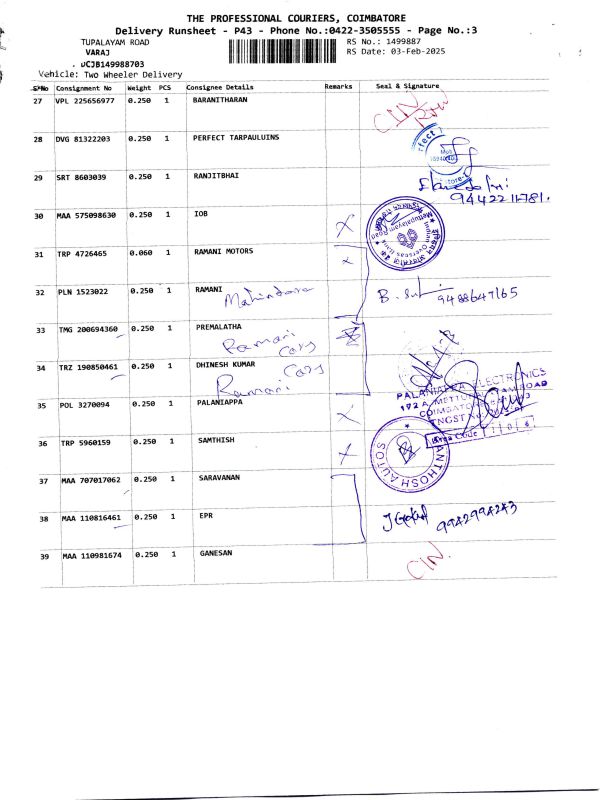 THE PROFESSIONAL COURIERS, COIMBATORE
Delivery Runsheet - P43 - Phone No.:0422-3505555 - Page No.:3
TUPALAYAM ROAD
RS No.: 1499887
VARAJ
RS Date: 03-Feb-2025
CJB149988703
Vehicle: Two Wheeler Delivery
S#No Consignment No Weight PCS Consignee Details Remarks Seal & Signature
27 VPL 225656977 0.250 1 BARANITHARAN
28 DVG 81322203 0.250 1 PERFECT TARPAULUINS
29 SRT 8603039 0.250 1 RANJITBHAI
9442211781.
30 MAA 575098630 0.250 1 IOB X
Mettupalayam Road
Indian Overseas Bank
31 TRP 4726465 0.060 1 RAMANI MOTORS x
32 PLN 1523022 0.250 1 RAMANI
Mahindara
9488647165
33 TMG 200694360 0.250 1 PREMALATHA
Ramani Cars
34 TRZ 190850461 0.250 1 DHINESH KUMAR
Ramani Cars
PALANIAPPA ELECTRONICS
35 POL 3270094 0.250 1 PALANIAPPA X
Area Code
36 TRP 5960159 0.250 1 SAMTHISH X
ANTHOSH AUTOS
37 MAA 707017062 0.250 1 SARAVANAN
38 MAA 110816461 0.250 1 EPR
9942994243
39 MAA 110981674 0.250 1 GANESAN
CIN.